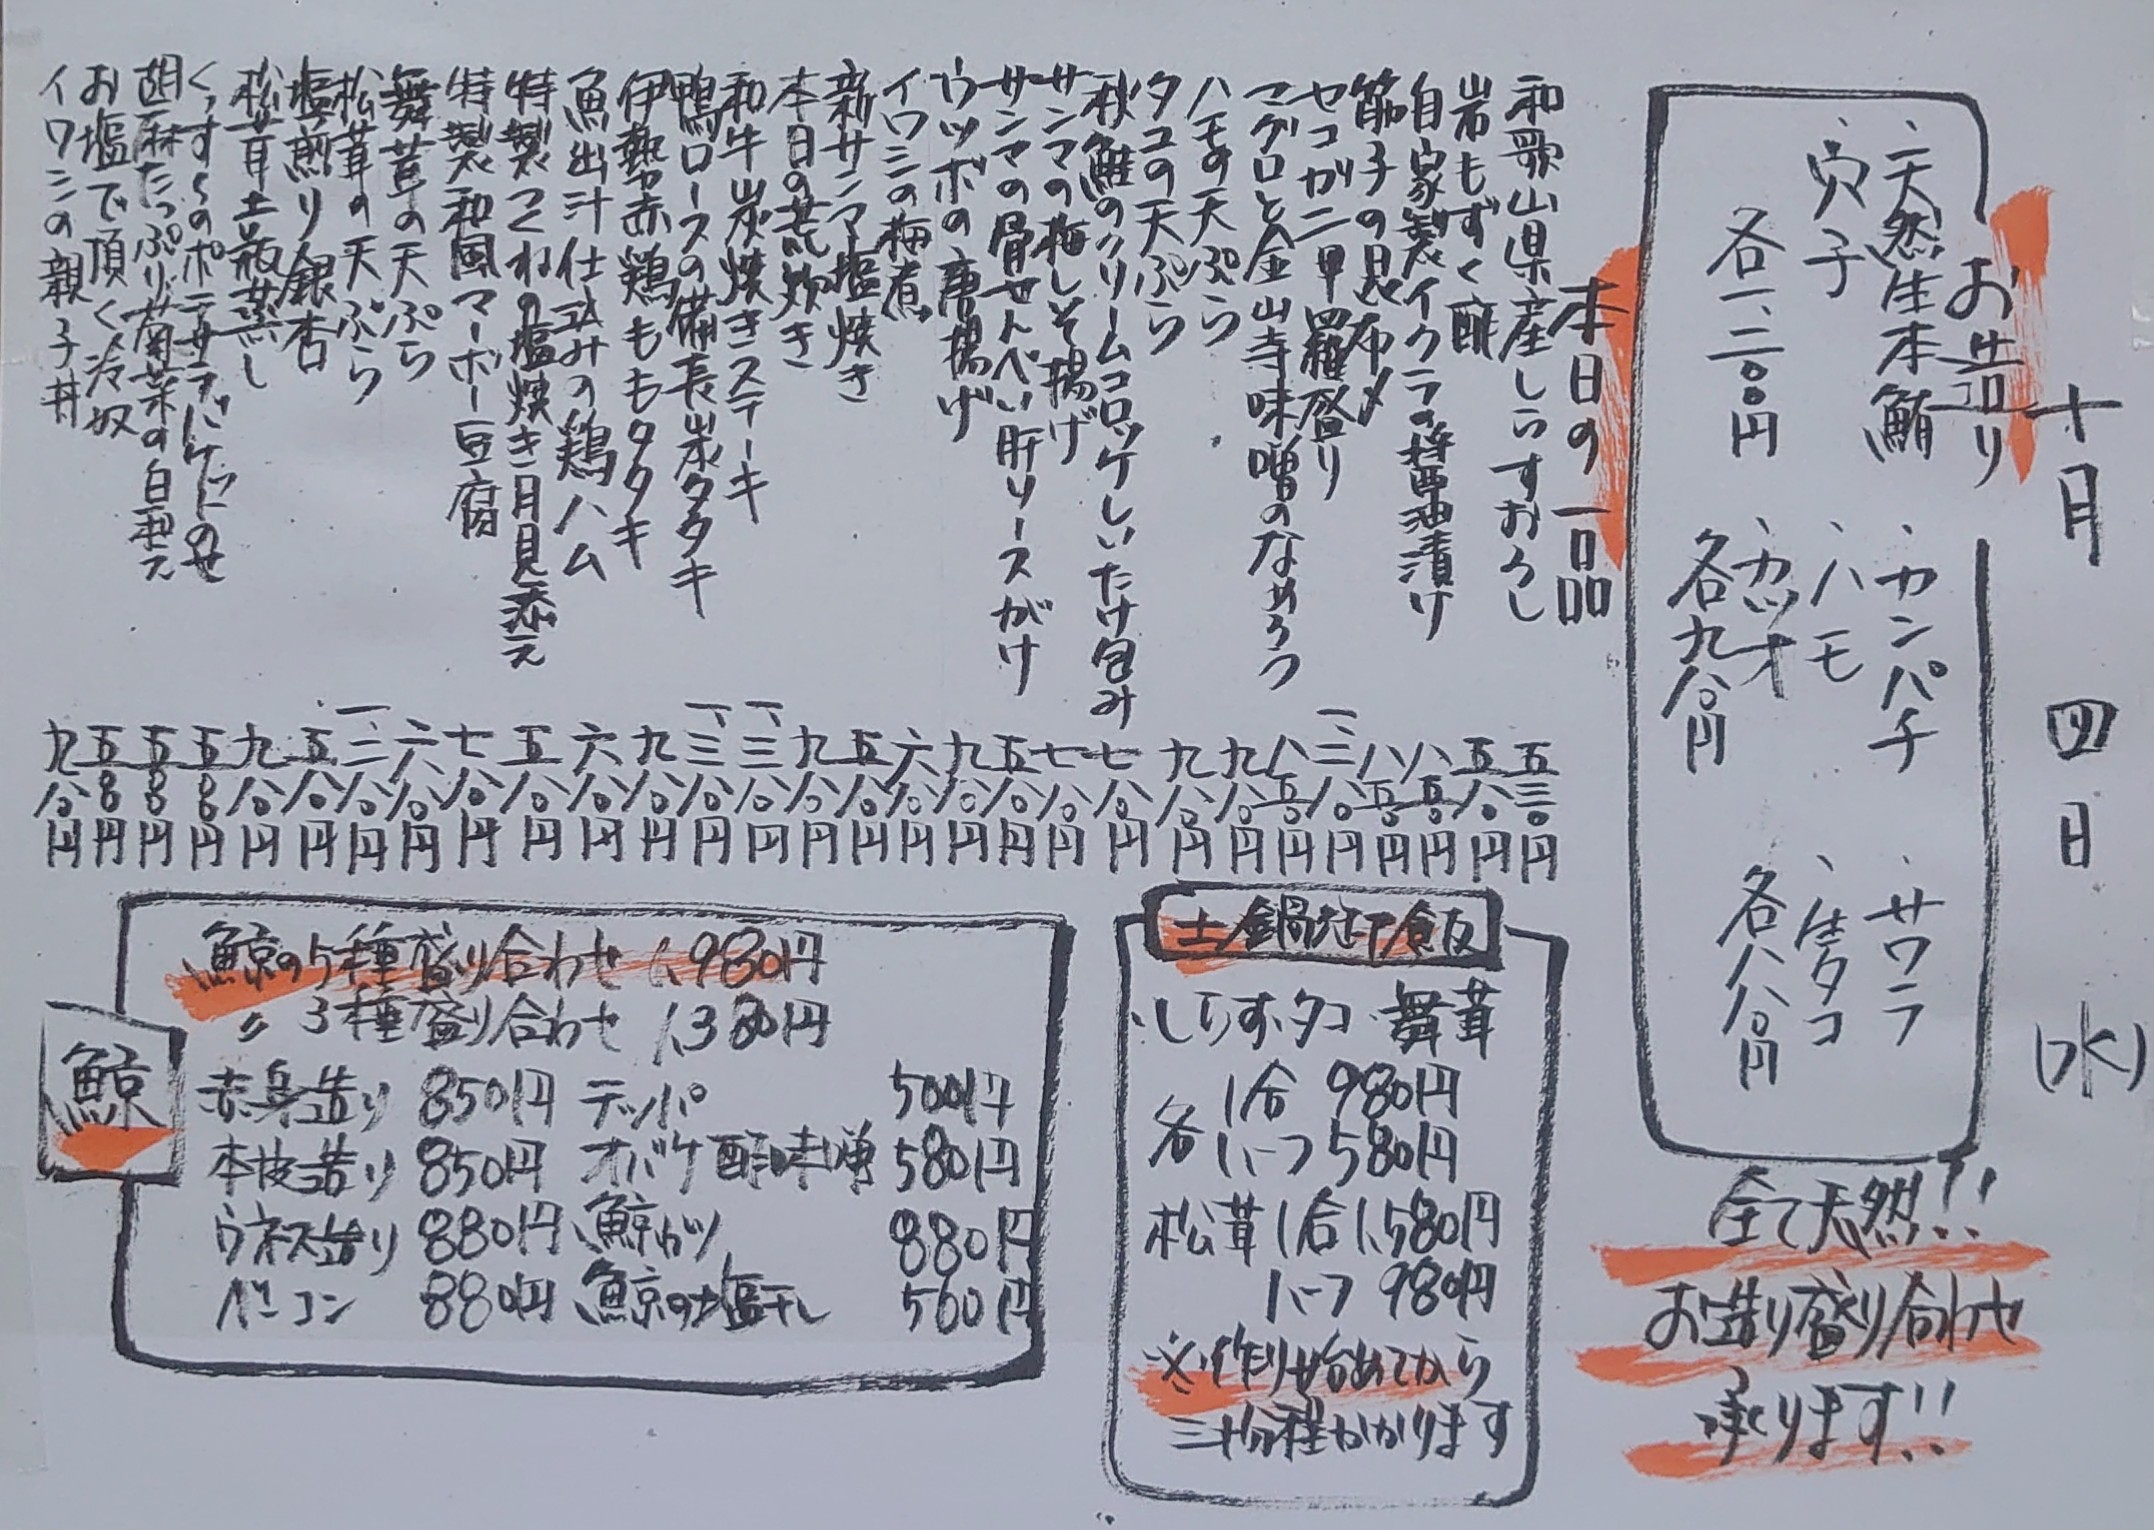 十月 四日 (水)
お造り
、天然生本鮪
穴子
各一、二〇〇円
、カンパチ
、ハモ
、カツオ
各九八〇円
、サワラ
、生タコ
各八八〇円
全て天然!!
お造り盛り合わせ
承ります!!
本日の一品
和歌山県産しらすおろし 五三〇円
岩もずく酢 五八〇円
自家製イクラの醤油漬け 八五〇円
筋子の昆布〆 八五〇円
セコガニ甲羅盛り 一、三八〇円
マグロと金山寺味噌のなめろう 八五〇円
ハモの天ぷら 九八〇円
タコの天ぷら 九八〇円
秋鮭のクリームコロッケしいたけ包み 七八〇円
サンマの梅しそ揚げ 七八〇円
サンマの骨せんべい肝ソースがけ 五八〇円
ウツボの唐揚げ 九八〇円
イワシの梅煮 六八〇円
新サンマ塩焼き 五八〇円
本日の荒炊き 九八〇円
和牛炭焼きステーキ 一、三八〇円
鴨ロースの備長炭タタキ 一、三八〇円
伊勢赤鶏ももタタキ 九八〇円
魚出汁仕込みの鶏ハム 六八〇円
特製つくねの塩焼き月見添え 五八〇円
特製和風マーボー豆腐 七八〇円
舞茸の天ぷら 六八〇円
松茸の天ぷら 一、二八〇円
塩煎り銀杏 五八〇円
松茸土瓶蒸し 九八〇円
くんすぐのポテサラバケットのせ 五八〇円
胡麻たっぷり菊菜の白和え 五八〇円
お塩で頂く冷奴 五八〇円
イワシの親子丼 九八〇円
土鍋炊き御飯
・しらす・タコ・舞茸
各 1合 980円
ハーフ 580円
松茸 1合 1,580円
ハーフ 980円
※作り始めてから
三十分程かかります
鯨
鯨の5種盛り合わせ 1,980円
〃 3種盛り合わせ 1,380円
赤身造り 850円 テッパ 500円
本皮造り 850円 オバケ酢味噌 580円
ウネス造り 880円 鯨カツ 880円
ベーコン 880円 鯨の塩干し 560円